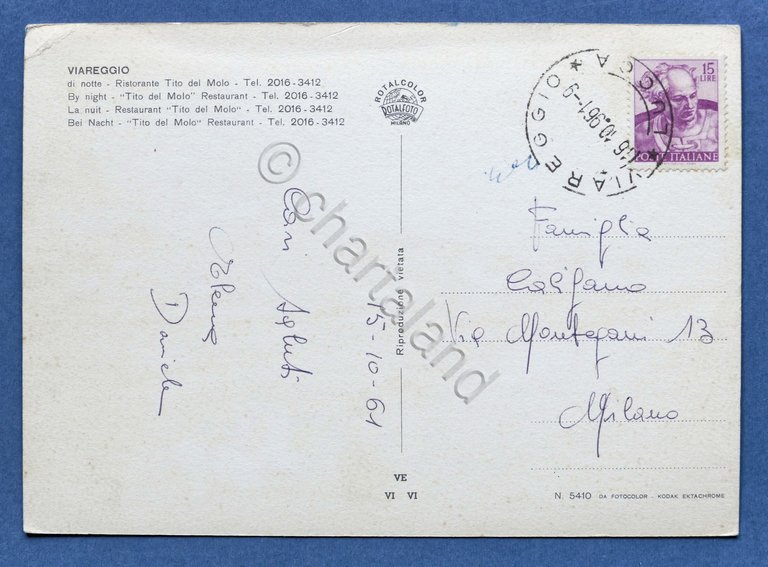 VIAREGGIO
di notte - Ristorante Tito del Molo - Tel. 2016-3412
By night - "Tito del Molo" Restaurant - Tel. 2016-3412
La nuit - Restaurant "Tito del Molo" - Tel. 2016-3412
Bei Nacht - "Tito del Molo" Restaurant - Tel. 2016-3412
ROTALCOLOR
ROTALFOTO
MILANO
VIAREGGIO * LUCCA *
15
LIRE
POSTE ITALIANE
15-10-61
Cari saluti
Daniela
Riproduzione vietata
Famiglia
Via Montegani 13
Milano
VE
VI VI
N. 5410 DA FOTOCOLOR - KODAK EKTACHROME
© chartaland